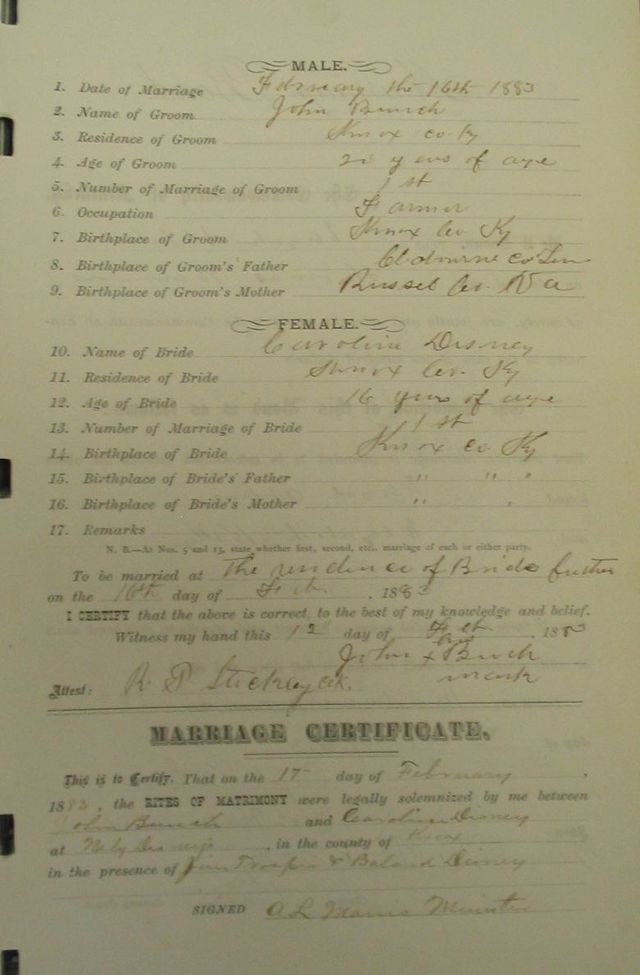 MALE.
1. Date of Marriage February the 16th 1883
2. Name of Groom John Bunch
3. Residence of Groom Knox co Ky
4. Age of Groom years of age
5. Number of Marriage of Groom 1st
6. Occupation Farmer
7. Birthplace of Groom Knox Co. Ky
8. Birthplace of Groom's Father Claibourne co Ten
9. Birthplace of Groom's Mother Russel Co. Va
FEMALE.
10. Name of Bride Caroline Disney
11. Residence of Bride Knox Co. Ky
12. Age of Bride 16 years of age
13. Number of Marriage of Bride 1st
14. Birthplace of Bride Knox co Ky
15. Birthplace of Bride's Father " " "
16. Birthplace of Bride's Mother "
17. Remarks
N. B.—At Nos. 5 and 13, state whether first, second, etc., marriage of each or either party.
To be married at The residence of Brides father
on the 16th day of Feb. , 1883
I CERTIFY that the above is correct, to the best of my knowledge and belief.
Witness my hand this 12 day of Feb , 1883
his
John x Bunch
mark
Attest: R. P. Stickley clk.
MARRIAGE CERTIFICATE.
This is to Certify, That on the 17 day of February ,
1883, the RITES OF MATRIMONY were legally solemnized by me between
John Bunch and Caroline Disney
at Disney's , in the county of Knox
in the presence of & Disney
SIGNED Minister